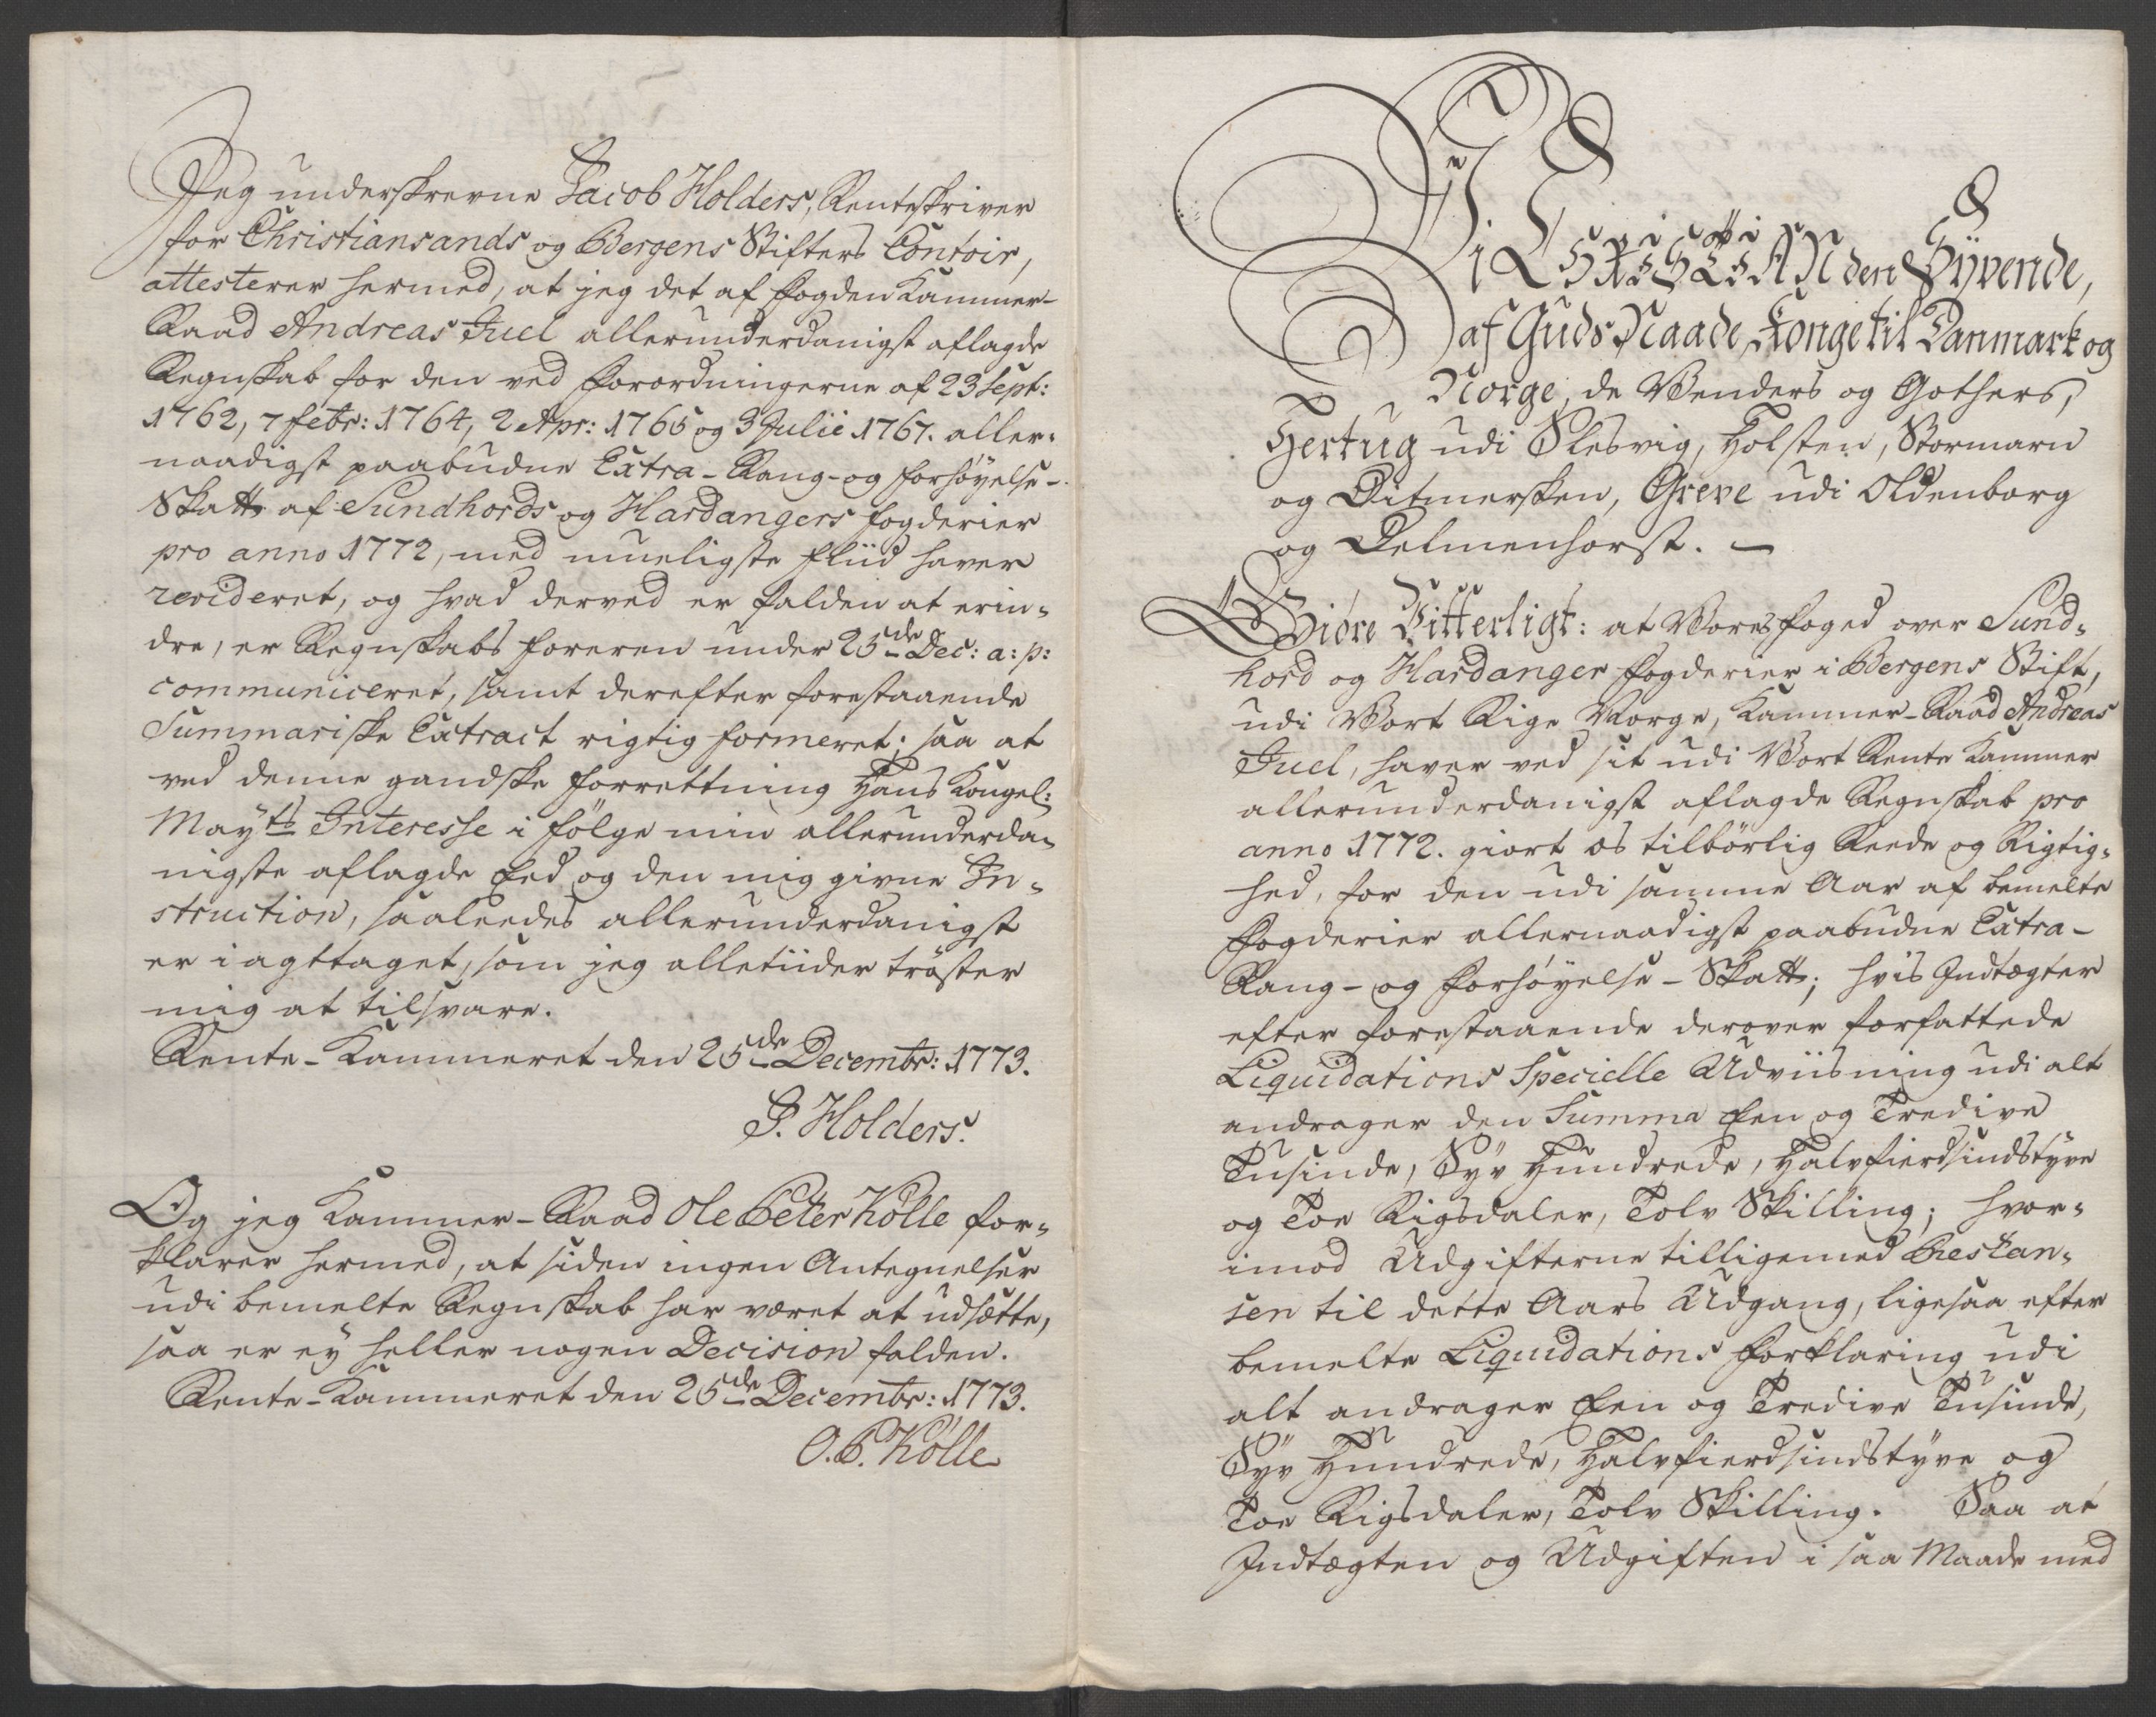 Jeg underskrevne Jacob Holders, Renteskriver
for Christiansands og Bergens Stifters Contoir,
attesterer hermed, at jeg det af Fogden Kammer-
Raad Andreas Juel allerunderdanigst aflagde
Regnskab for den ved Forordningerne af 23 Sept:
1762, 7 febr: 1764, 2 Apr: 1765 og 3 Julii 1767. aller-
naadigst paabudne Extra- Rang- og Forhöyelse-
Skatt af Sundhords og Hardangers Fogderier
pro anno 1772, med mueligste Fliid haver
revideret, og hvad derved er falden at erin-
dre, er Regnskabs Foreren under 25de Dec: a: p:
communiceret, samt derefter forestaaende
Summariske Extract rigtig formeret; saa at
ved denne gandske Forrettning Hans Kongel:
Mayts Interesse i fölge min allerunderda-
nigste aflagde Eed og den mig givne In-
struction, saaleedes allerunderdanigst
er iagttaget, som jeg alletiider tröster
mig at tilsvare.
Rente-Kammeret den 25de Decembr: 1773.
J. Holders.
Og jeg Kammer-Raad Ole Peter Kölle for-
klarer hermed, at siden ingen Antegnelser
udi bemelte Regnskab har været at udsætte,
saa er ey heller nogen Decision falden.
Rente-Kammeret den 25de Decembr: 1773.
O. P. Kölle
Vi CHRISTIAN den Syvende,
af Guds Naade, Konge til Danmark og
Norge, de Wenders og Gothers,
Hertug udi Slesvig, Holsten, Stormarn
og Ditmersken, Greve udi Oldenborg
og Delmenhorst. —
Giöre Vitterligt: at Vores Foged over Sund-
hord og Hardanger Fogderier i Bergens Stift,
udi Vort Rige Norge, Kammer-Raad Andreas
Juel, haver ved sit udi Vort Rente Kammer
allerunderdanigst aflagde Regnskab pro
anno 1772. giort os tilbörlig Reede og Rigtig-
hed, for den udi samme Aar af bemelte
Fogderier allernaadigst paabudne Extra-
Rang- og Forhöyelse- Skatt; hvis Indtægter
efter forestaaende derover forfattede
Liquidations Specielle Udviisning udi alt
andrager den Summa Een og Tredive
Tusinde, Syv Hundrede, Halvfierdsindstyve
og Toe Rigsdaler, Tolv Skilling; hvor-
imod Udgifterne tilligemed Restan-
sen til dette Aars Udgang, ligesaa efter
bemelte Liquidations Forklaring udi
alt andrager Een og Tredive Tusinde,
Syv Hundrede, Halvfierdsindstyve og
Toe Rigsdaler, Tolv Skilling. Saa at
Indtægten og Udgiften i saa Maade med